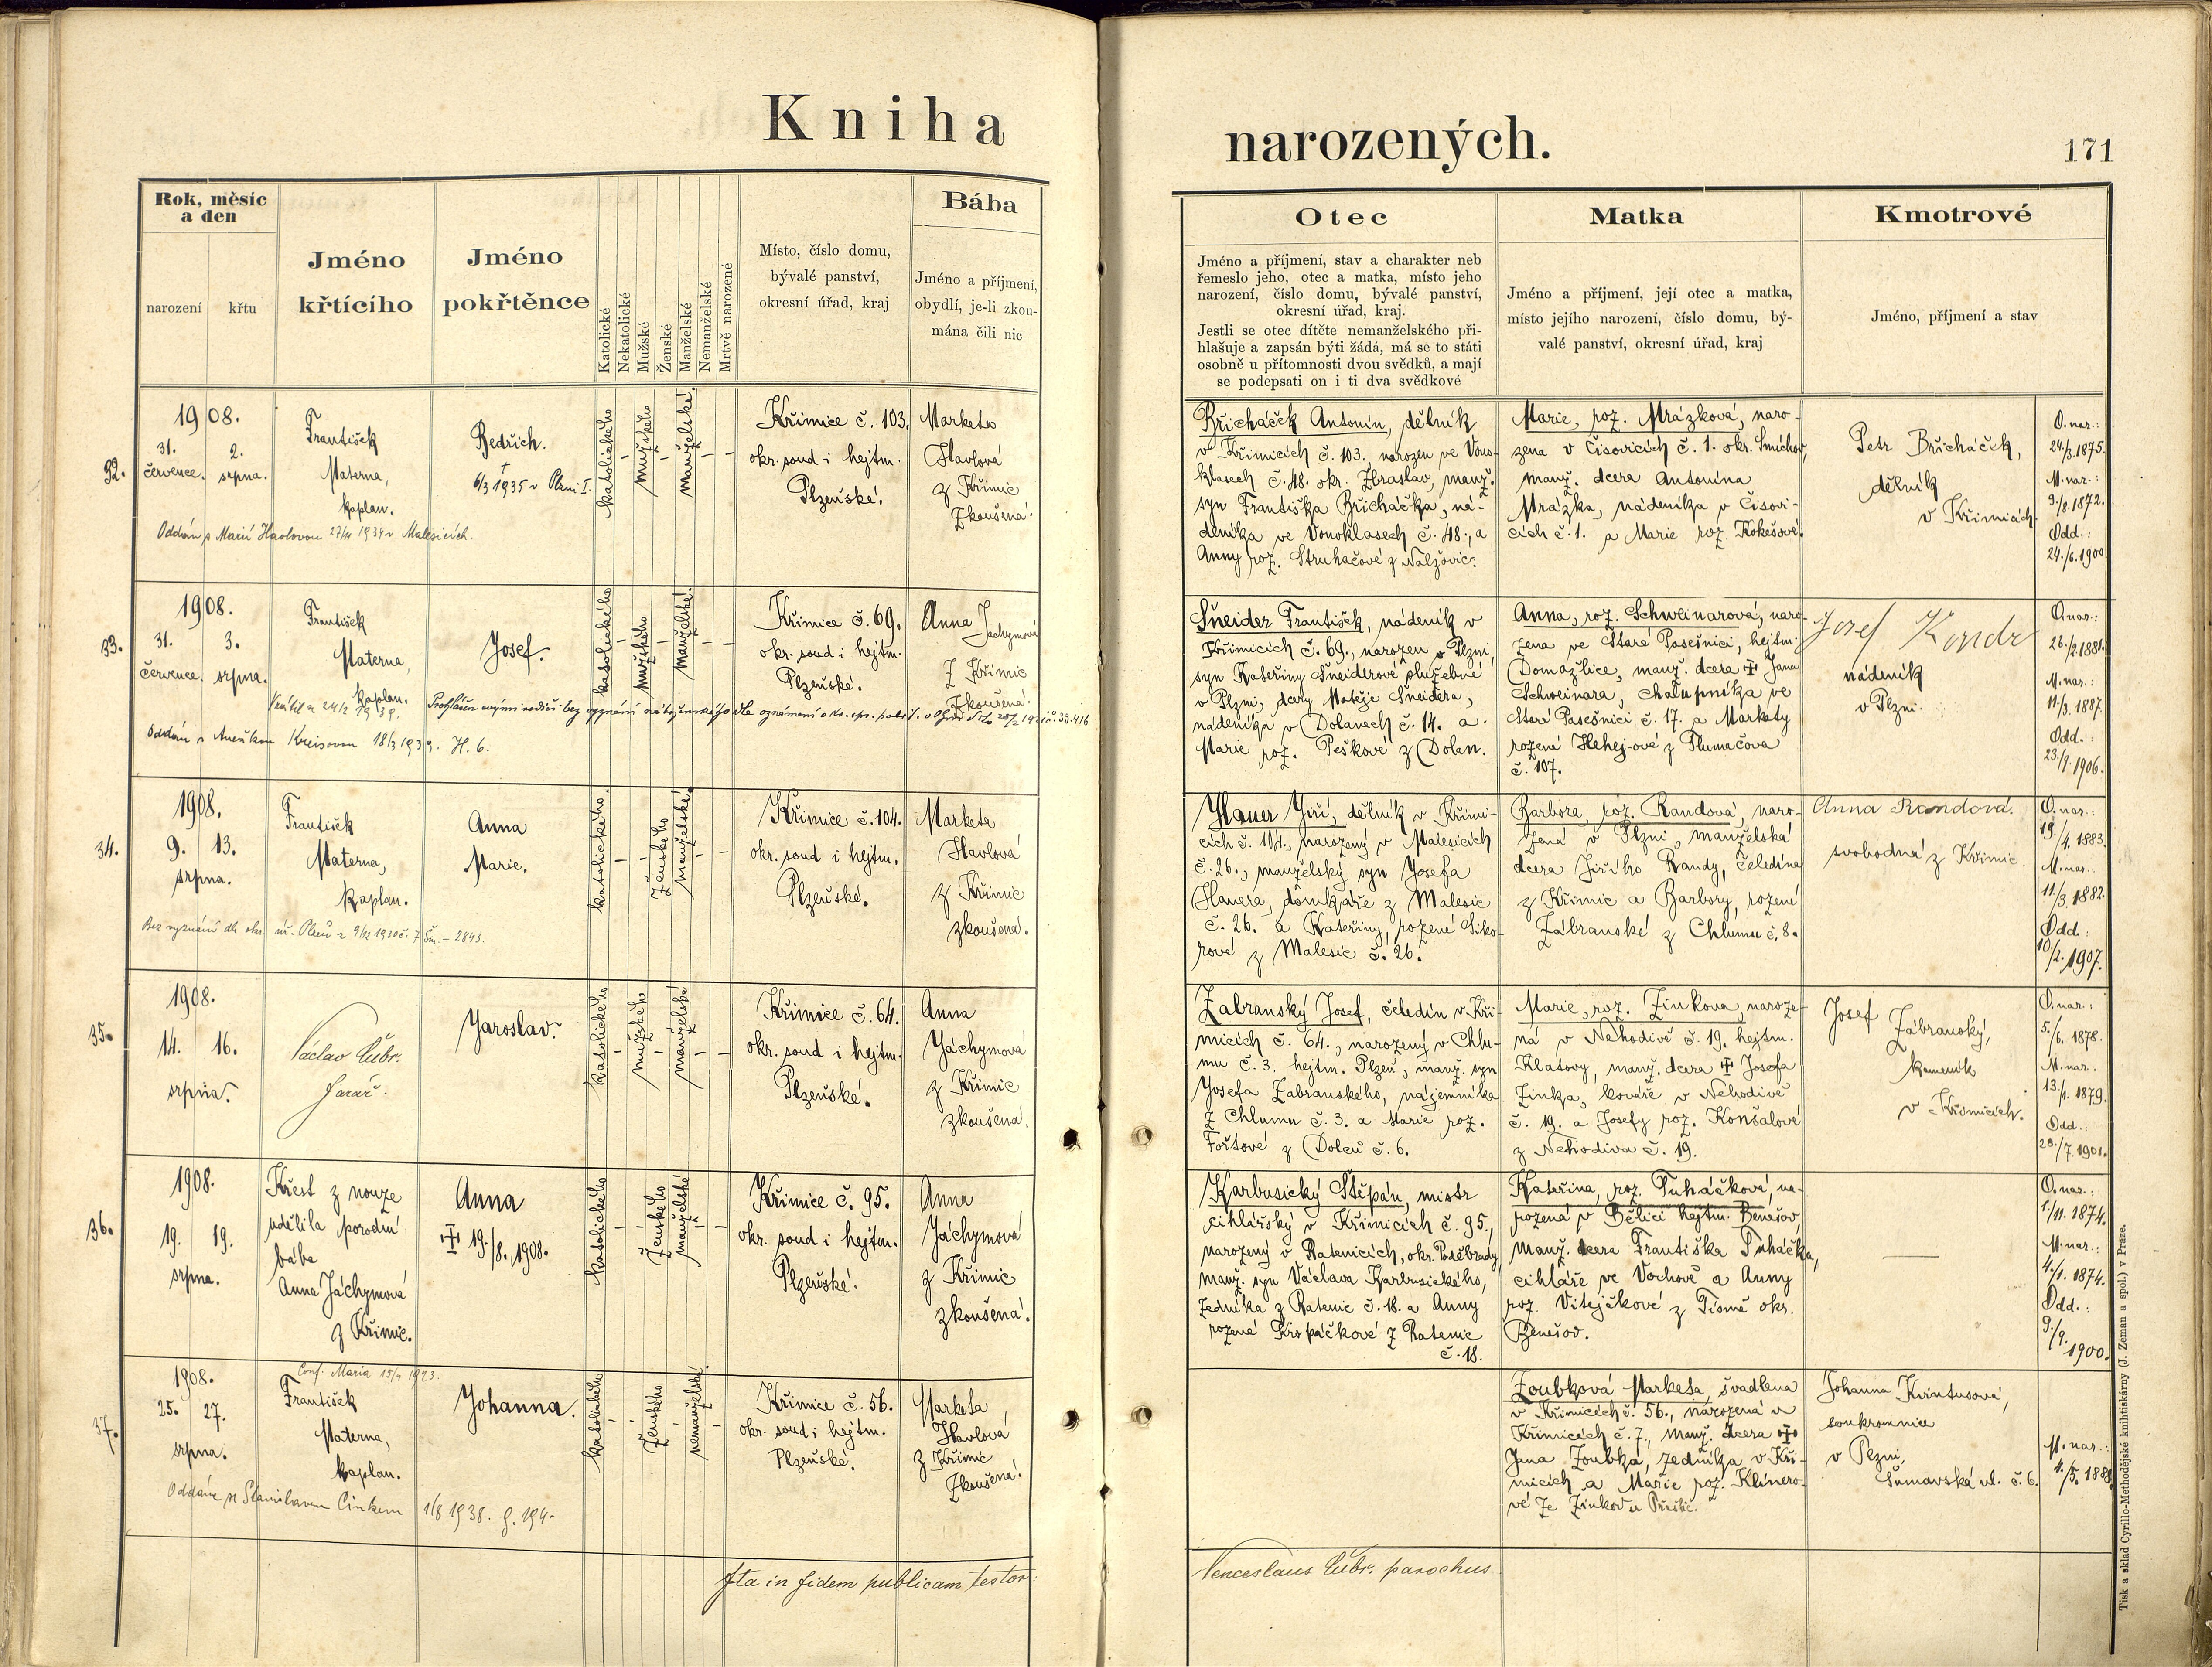 Kniha
narozených.
171
Rok, měsíc
a den
narození
křtu
Jméno
křtícího
Jméno
pokřtěnce
Katolické
Nekatolické
Mužské
Ženské
Manželské
Nemanželské
Mrtvě narozené
Místo, číslo domu,
bývalé panství,
okresní úřad, kraj
Bába
Jméno a příjmení,
obydlí, je-li zkou-
mána čili nic
Otec
Jméno a příjmení, stav a charakter neb
řemeslo jeho, otec a matka, místo jeho
narození, číslo domu, bývalé panství,
okresní úřad, kraj.
Jestli se otec dítěte nemanželského při-
hlašuje a zapsán býti žádá, má se to státi
osobně u přítomnosti dvou svědků, a mají
se podepsati on i ti dva svědkové
Matka
Jméno a příjmení, její otec a matka,
místo jejího narození, číslo domu, bý-
valé panství, okresní úřad, kraj
Kmotrové
Jméno, příjmení a stav
32.
1908.
31. 2.
července. srpna.
František
Materna,
kaplan.
Bedřich.
† 6/3 1935 v Plzni I.
katolického
mužského
manželské.
Křimice č. 103.
okr. soud i hejtm.
Plzeňské.
Marketa
Havlová
z Křimic
Zkoušená.
Oddán s Marií Havlovou 1934 v Malesicích.
Břicháček Antonín, dělník
v Křimicích č. 103. narozen ve Vono-
klasech č. 48. okr. Zbraslav, manž.
syn Františka Břicháčka, ná-
deníka ve Vonoklasech č. 48., a
Anny roz. Struhačové z Nalžovic.
Marie, roz. Mrázková, naro-
zena v Čisovicích č. 1. okr. Smíchov,
manž. dcera Antonína
Mrázka, nádeníka v Čisovi-
cích č. 1. a Marie roz. Kokešové.
Petr Břicháček,
dělník
v Křimicích.
O. nar.:
24/3. 1875.
M. nar.:
9./8. 1872.
Odd.:
24./6. 1900
33.
1908.
31. 3.
července. srpna.
František
Materna,
kaplan.
Josef.
katolického
mužského
manželské.
Křimice č. 69.
okr. soud i hejtm.
Plzeňské.
Anna Jáchymová
z Křimic
Zkoušená.
Prohlášen svými rodiči bez vyznání náboženského dle oznámení
Oddán s Aneškou Kreisovou 18/3 1939. H. 6.
Šneider František, nádeník v
Křimicích č. 69., narozen v Plzni,
syn Kateřiny Šneiderové služebné
v Plzni, dcery Matěje Šneidera,
nádeníka v Dolanech č. 14. a
Marie roz. Peškové z Dolan.
Anna, roz. Schweinarová, naro-
zena ve Staré Pasečnici, hejtm.
Domažlice, manž. dcera † Jana
Schweinara, chalupníka ve
Staré Pasečnici č. 17. a Markety
rozené Hehej-ové z Tlumačova
č. 107.
Josef
nádeník
v Plzni.
O. nar.:
26./2. 1881.
M. nar.:
11/3. 1887.
Odd.:
23./9. 1906.
34.
1908.
9. 13.
srpna.
František
Materna,
kaplan.
Anna
Marie.
katolického.
Ženského
manželské.
Křimice č. 104.
okr. soud i hejtm.
Plzeňské.
Marketa
Havlová
z Křimic
zkoušená.
Hauer Jiří, dělník v Křimi-
cích č. 104., narozený v Malesicích
č. 26., manželský syn Josefa
Hauera, domkáře z Malesic
č. 26. a Kateřiny, rozené Siko-
rové z Malesic č. 26.
Barbora, roz. Randová, naro-
zená v Plzni, manželská
dcera Jiřího Randy, čeledína
z Křimic a Barbory, rozené
Zábranské z Chlumu č. 8.
Anna Randová.
svobodná z Křimic.
O. nar.:
19./4. 1883.
M. nar.:
11/3. 1882.
Odd.:
10/2. 1907.
35.
1908.
14. 16.
srpna.
Václav Cübr.
farář.
Jaroslav.
katolického
mužského
manželské
Křimice č. 64.
okr. soud i hejtm.
Plzeňské.
Anna
Jáchymová
z Křimic
zkoušená.
Zábranský Josef, čeledín v Kři-
micích č. 64., narozený v Chlu-
mu č. 3. hejtm. Plzeň, manž. syn
Josefa Zábranského, nájemníka
z Chlumu č. 3. a Marie roz.
Fořtové z Doleň č. 6.
Marie, roz. Zinkova, naroze-
ná v Nehodivě č. 19. hejtm.
Klatovy, manž. dcera † Josefa
Zinka, kováře v Nehodivě
č. 19. a Josefy roz. Konšalové
z Nehodiva č. 19.
Josef Zábranský,
kameník
v Křimicích.
O. nar.:
5./6. 1878.
M. nar.
13./1. 1879.
Odd.:
28./7. 1901.
36.
1908.
19. 19.
srpna.
Křest z nouze
udělila porodní
bába
Anna Jáchymová
z Křimic.
Anna
† 19./8. 1908.
katolického
Ženského
manželské
Křimice č. 95.
okr. soud i hejtm.
Plzeňské.
Anna
Jáchymová
z Křimic
zkoušená.
Karbusický Štěpán, mistr
cihlářský v Křimicích č. 95.,
narozený v Ratenicích, okr. Poděbrady
manž. syn Václava Karbusického,
zedníka z Ratenic č. 18. a Anny
rozené Krspáčkové z Ratenic
č. 18.
Kateřina, roz. Tuháčková, na-
rozená v Bělici hejtm. Benešov,
manž. dcera Františka Tuháčka,
cihláře ve Vochově a Anny
roz. Vitejčkové z Tismě okr.
Benešov.
O. nar.:
1./11. 1874.
M. nar.:
4./1. 1874.
Odd.:
9./9.
1900.
37.
1908.
25. 27.
srpna.
Conf. Maria 1923.
František
Materna,
kaplan.
Johanna.
katolického
Ženského
nemanželské.
Křimice č. 56.
okr. soud i hejtm.
Plzeňské.
Marketa
Havlová
z Křimic
Zkoušená.
Oddána se Stanislavem Cinkem 1/8 1938.
Zoubková Marketa, švadlena
v Křimicích č. 56., narozená v
Křimicích č. 7., manž. dcera †
Jana Zoubka, zedníka v Kři-
micích a Marie roz. Klimero-
vé ze Zinkov u Přeštic.
Johanna Kvintusová,
soukromnice
v Plzni,
Šumavská ul. č. 6.
M. nar.:
Ita in fidem publicam testor:
Venceslaus Cübr. parochus
Tisk a sklad Cyrillo-Methodějské knihtiskárny (J. Zeman a spol.) v Praze.